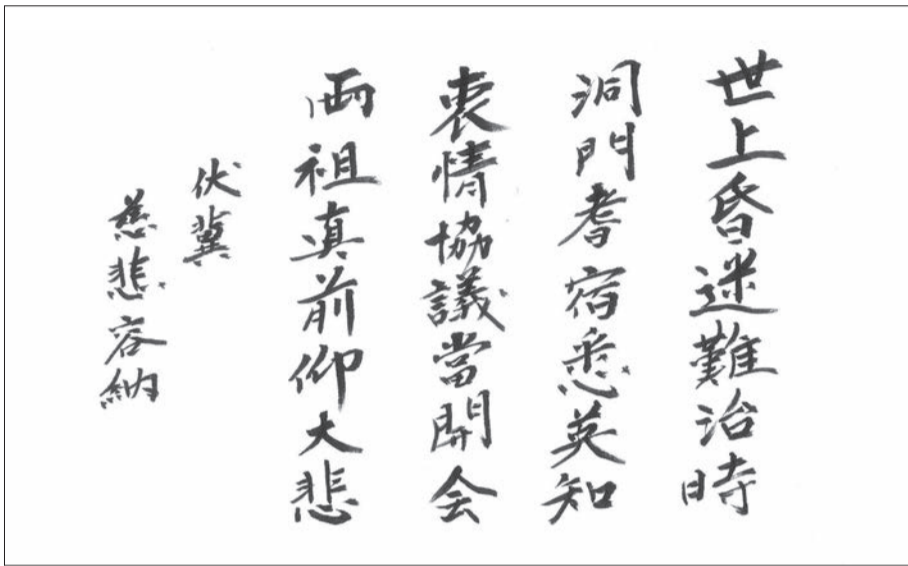 世上昏迷難治時
洞門耆宿悉英知
衷情協議當開会
両祖真前仰大悲
伏冀
慈悲容納